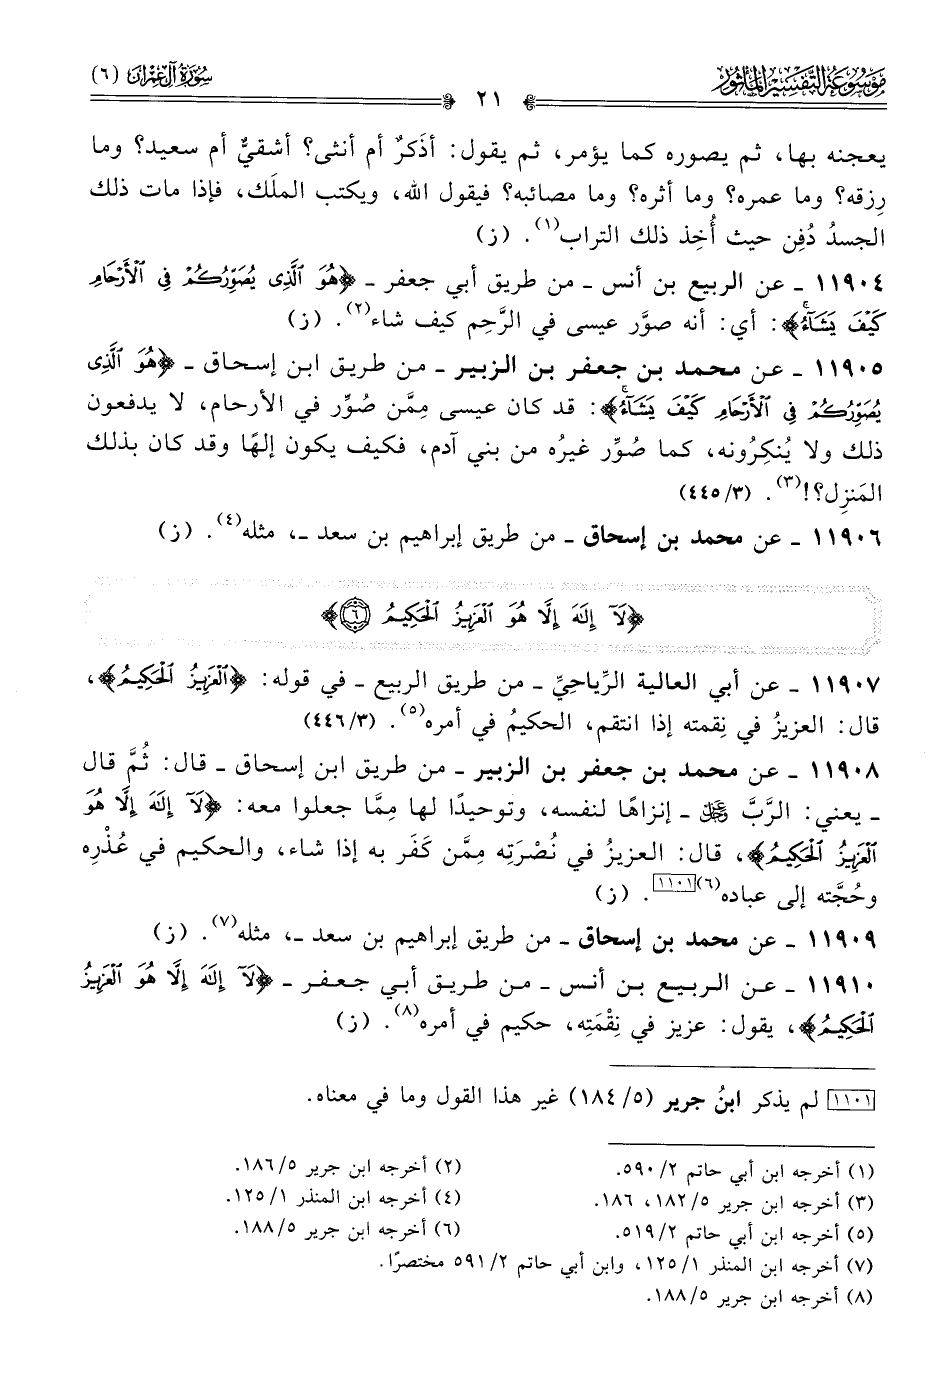 موسوعة التفسير المأثور
٢١
سورة آل عمران (٦)
يعجنه بها، ثم يصوره كما يؤمر، ثم يقول: أذَكرٌ أم أنثى؟ أشقيٌّ أم سعيد؟ وما
رِزقه؟ وما عمره؟ وما أثره؟ وما مصائبه؟ فيقول الله، ويكتب الملَك، فإذا مات ذلك
الجسدُ دُفِن حيث أُخِذ ذلك التراب(١). (ز)
١١٩٠٤ ـ عن الربيع بن أنس ـ من طريق أبي جعفر ـ ﴿هُوَ ٱلَّذِى يُصَوِّرُكُمْ فِى ٱلْأَرْحَامِ
كَيْفَ يَشَآءُۚ﴾: أي: أنه صوَّر عيسى في الرَّحِم كيف شاء(٢). (ز)
١١٩٠٥ ـ عن محمد بن جعفر بن الزبير ـ من طريق ابن إسحاق ـ ﴿هُوَ ٱلَّذِى
يُصَوِّرُكُمْ فِى ٱلْأَرْحَامِ كَيْفَ يَشَآءُۚ﴾: قد كان عيسى مِمَّن صُوِّر في الأرحام، لا يدفعون
ذلك ولا يُنكِرُونه، كما صُوِّر غيرُه من بني آدم، فكيف يكون إلهًا وقد كان بذلك
المَنزِل؟!(٣). (٤٤٥/٣)
١١٩٠٦ ـ عن محمد بن إسحاق ـ من طريق إبراهيم بن سعد ـ، مثله(٤). (ز)
﴿لَآ إِلَٰهَ إِلَّا هُوَ ٱلْعَزِيزُ ٱلْحَكِيمُ ٦﴾
١١٩٠٧ ـ عن أبي العالية الرِّياحيِّ ـ من طريق الربيع ـ في قوله: ﴿ٱلْعَزِيزُ ٱلْحَكِيمُ﴾،
قال: العزيزُ في نِقمته إذا انتقم، الحكيمُ في أمره(٥). (٤٤٦/٣)
١١٩٠٨ ـ عن محمد بن جعفر بن الزبير ـ من طريق ابن إسحاق ـ قال: ثُمَّ قال
ـ يعني: الرَّبَّ ﷿ ـ إنزاهًا لنفسه، وتوحيدًا لها مِمَّا جعلوا معه: ﴿لَآ إِلَٰهَ إِلَّا هُوَ
ٱلْعَزِيزُ ٱلْحَكِيمُ﴾، قال: العزيزُ في نُصْرَتِه مِمَّن كَفَر به إذا شاء، والحكيم في عُذْرِه
وحُجَّته إلى عباده(٦)[١١٠١]. (ز)
١١٩٠٩ ـ عن محمد بن إسحاق ـ من طريق إبراهيم بن سعد ـ، مثله(٧). (ز)
١١٩١٠ ـ عن الربيع بن أنس ـ من طريق أبي جعفر ـ ﴿لَآ إِلَٰهَ إِلَّا هُوَ ٱلْعَزِيزُ
ٱلْحَكِيمُ﴾، يقول: عزيز في نِقْمَتِه، حكيم في أمره(٨). (ز)
[١١٠١] لم يذكر ابنُ جرير (١٨٤/٥) غير هذا القول وما في معناه.
(١) أخرجه ابن أبي حاتم ٥٩٠/٢.
(٢) أخرجه ابن جرير ١٨٦/٥.
(٣) أخرجه ابن جرير ١٨٢/٥، ١٨٦.
(٤) أخرجه ابن المنذر ١٢٥/١.
(٥) أخرجه ابن أبي حاتم ٥١٩/٢.
(٦) أخرجه ابن جرير ١٨٨/٥.
(٧) أخرجه ابن المنذر ١٢٥/١، وابن أبي حاتم ٥٩١/٢ مختصرًا.
(٨) أخرجه ابن جرير ١٨٨/٥.